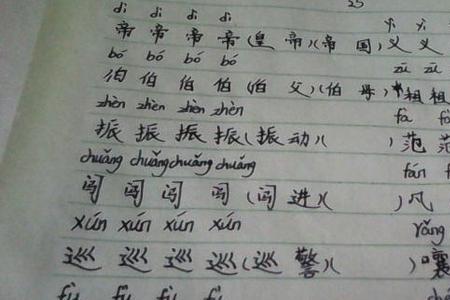 25
dì dì dì dì yì yì
帝 帝 帝 帝 (皇 帝)(帝 国) 义 义
bó bó bó bó zǔ zǔ
伯 伯 伯 伯 (伯 父)(伯 母) 祖 祖
zhèn zhèn zhèn zhèn fà
振 振 振 振 (振 动)( ) 范 范
chuǎng chuǎng chuǎng chuǎng fán
闯 闯 闯 闯 (闯 进)( ) 凡
xún xún xún xún rǎng
巡 巡 巡 巡 (巡 警)( ) 嚷